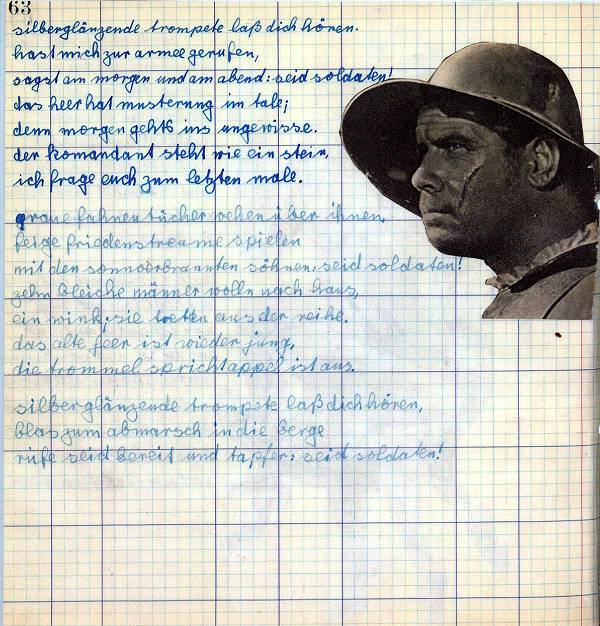 63
silberglänzende trompete laß dich hören.
hast mich zur armee gerufen,
sagst am morgen und am abend: seid soldaten!
das heer hat musterung im tale;
denn morgen gehts ins ungewisse.
der komandant steht wie ein stein,
ich frage euch zum letzten male.
graue fahnentücher wehen über ihnen,
feige friedenstreume spielen
mit den sonnverbrannten söhnen: seid soldaten!
zehn bleiche männer wolln nach haus,
ein wink, sie treten aus der reihe.
das alte heer ist wieder jung,
die trommel spricht appel ist aus.
silberglänzende trompete laß dich hören,
blas zum abmarsch in die berge
rufe seid bereit und tapfer: seid soldaten!